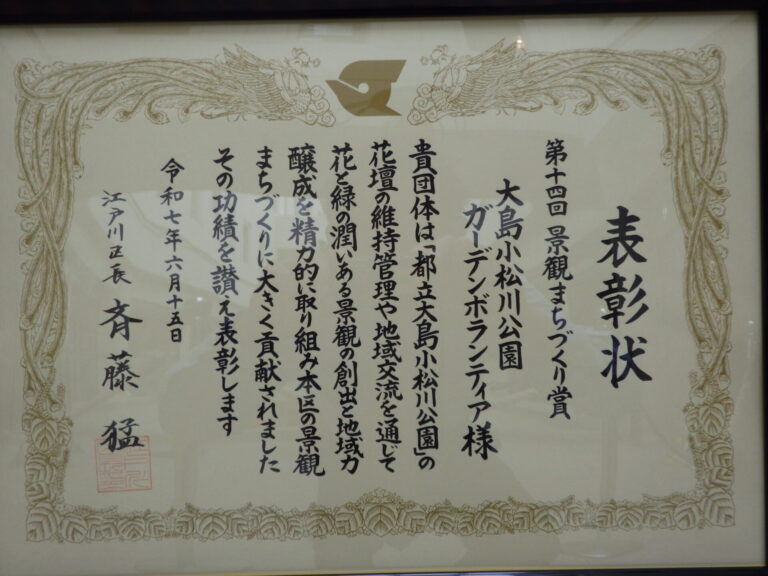 表彰状
第十四回 景観まちづくり賞
大島小松川公園
ガーデンボランティア様
貴団体は「都立大島小松川公園」の
花壇の維持管理や地域交流を通じて
花と緑の潤いある景観の創出と地域力
醸成を精力的に取り組み本区の景観
まちづくりに大きく貢献されました
その功績を讃え表彰します
令和七年六月十五日
江戸川区長 斉藤 猛